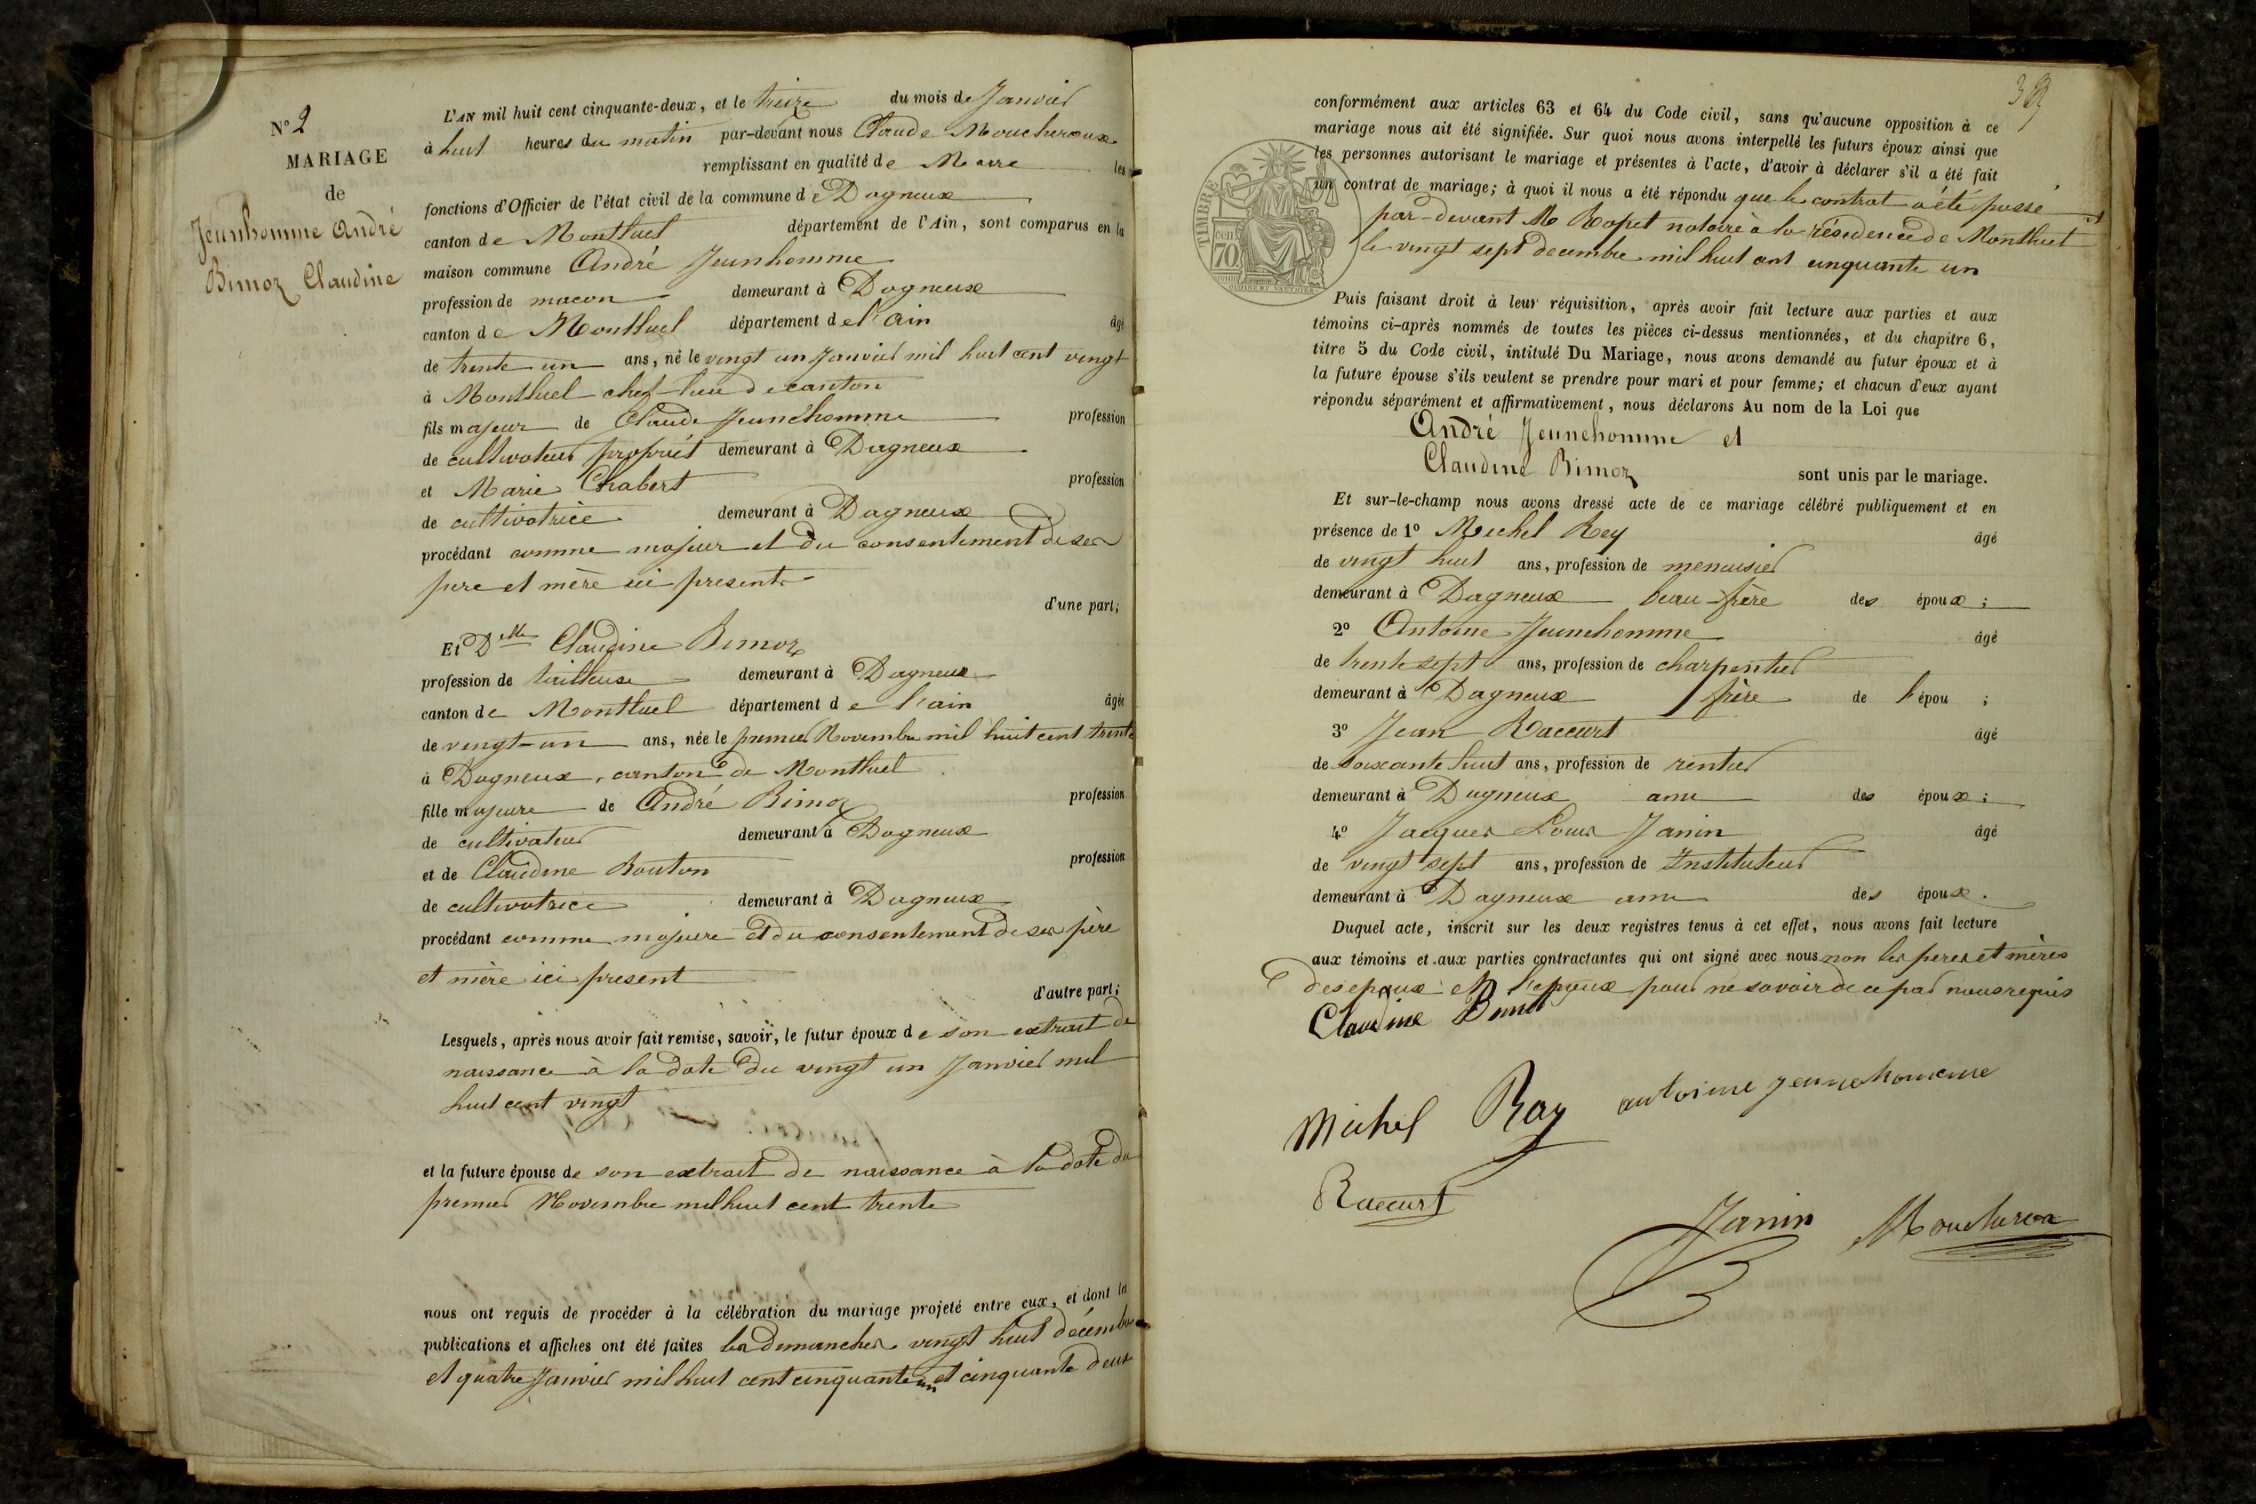 N° 2
MARIAGE
de
Jeunhomme André
Bimoz Claudine
L'AN mil huit cent cinquante-deux, et le treize du mois de Janvier
à huit heures du matin par-devant nous Claude Moucheroux
remplissant en qualité de Maire les
fonctions d'Officier de l'état civil de la commune de Dagneux
canton de Montluel département de l'Ain, sont comparus en la
maison commune André Jeunhomme
profession de macon demeurant à Dagneux
canton de Montluel département de l'ain âgé
de trente un ans, né le vingt un Janvier mil huit cent vingt
à Montluel chef-lieu de canton
fils majeur de Claude Jeunehomme profession
de cultivateur propriét demeurant à Dagneux
et Marie Chabert profession
de cultivatrice demeurant à Dagneux
procédant comme majeur et du consentement de ses
pere et mère ici present
d'une part;
Et Dlle Claudine Bimoz
profession de tailleuse demeurant à Dagneux
canton de Montluel département de l'ain âgée
de vingt-un ans, née le premier Novembre mil huit cent trente
à Dagneux, canton de Montluel
fille majeure de André Bimoz profession
de cultivateur demeurant à Dagneux
et de Claudine Bouton profession
de cultivatrice demeurant à Dagneux
procédant comme majeure et du consentement de ses père
et mère ici present
d'autre part;
Lesquels, après nous avoir fait remise, savoir, le futur époux de son extrait de
naissance à la date du vingt un Janvier mil
huit cent vingt
et la future épouse de son extrait de naissance à la date du
premier Novembre mil huit cent trente
nous ont requis de procéder à la célébration du mariage projeté entre eux, et dont les
publications et affiches ont été faites les dimanches vingt huit décembre
et quatre Janvier mil huit cent cinquante un et cinquante deux
conformément aux articles 63 et 64 du Code civil, sans qu'aucune opposition à ce
mariage nous ait été signifiée. Sur quoi nous avons interpellé les futurs époux ainsi que
les personnes autorisant le mariage et présentes à l'acte, d'avoir à déclarer s'il a été fait
un contrat de mariage; à quoi il nous a été répondu que le contrat a été passé
par-devant Me Ropet notaire à la résidence de Montluel
le vingt sept decembre mil huit cent cinquante un
TIMBRE
70
Puis faisant droit à leur réquisition, après avoir fait lecture aux parties et aux
témoins ci-après nommés de toutes les pièces ci-dessus mentionnées, et du chapitre 6,
titre 5 du Code civil, intitulé Du Mariage, nous avons demandé au futur époux et à
la future épouse s'ils veulent se prendre pour mari et pour femme; et chacun d'eux ayant
répondu séparément et affirmativement, nous déclarons Au nom de la Loi que
André Jeunehomme et
Claudine Bimoz sont unis par le mariage.
Et sur-le-champ nous avons dressé acte de ce mariage célébré publiquement et en
présence de 1° Michel Rey âgé
de vingt huit ans, profession de menuisier
demeurant à Dagneux beau-frère des époux;
2° Antoine Jeunehomme âgé
de trente sept ans, profession de charpentier
demeurant à Dagneux frère de l'épou ;
3° Jean Raccurt âgé
de soixante huit ans, profession de rentier
demeurant à Dagneux ami des époux;
4° Jacques Louis Janin âgé
de vingt sept ans, profession de Instituteur
demeurant à Dagneux ami des époux.
Duquel acte, inscrit sur les deux registres tenus à cet effet, nous avons fait lecture
aux témoins et aux parties contractantes qui ont signé avec nous non les peres et mères
des epoux et l'epoux pour ne savoir de ce par nous requis
Claudine Bimot
Michel Ray antoine jeunehomme
Raccurt
Janin Moucheroux